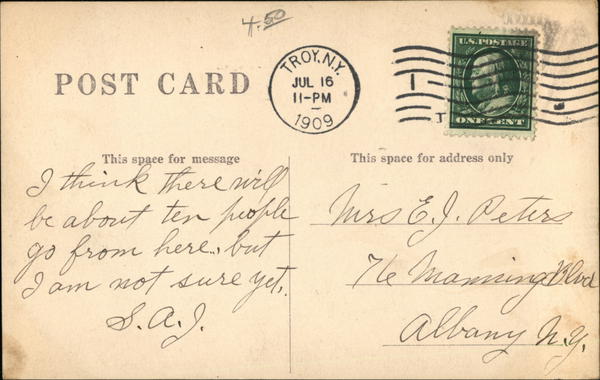 4.50
POST CARD
TROY, N.Y.
JUL 16
11-PM
1909
U.S. POSTAGE
ONE CENT
This space for message
This space for address only
I think there will
be about ten people
go from here, but
I am not sure yet.
S.A.J.
Mrs E. J. Peters
76 Manning Blvd
Albany N.Y.